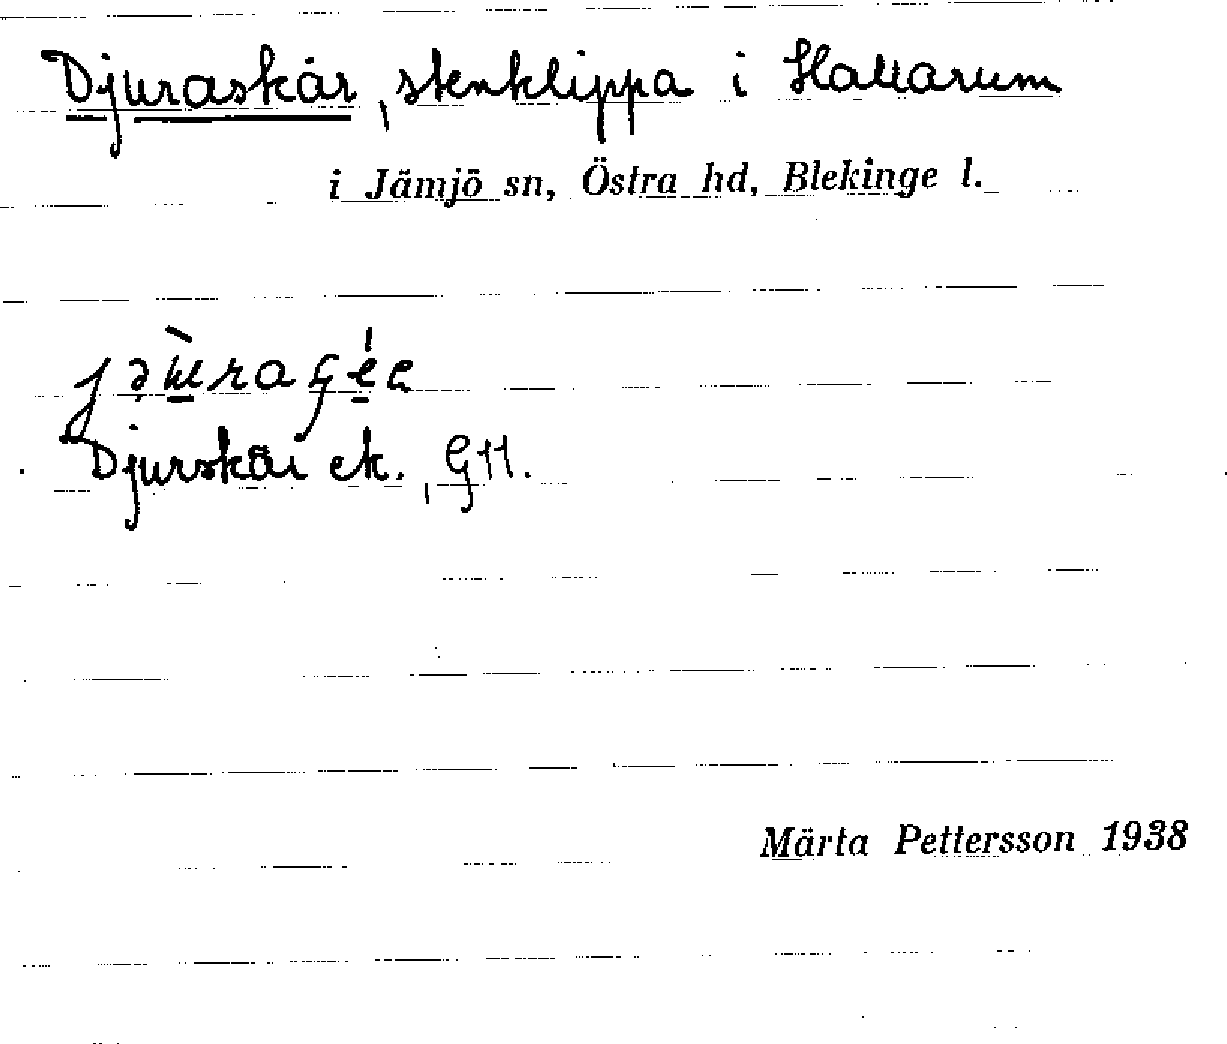 Djuraskär, stenklippa i Hallarum
i Jämjö sn, Östra hd, Blekinge l.
Djurskär ek.,
Märta Pettersson 1938